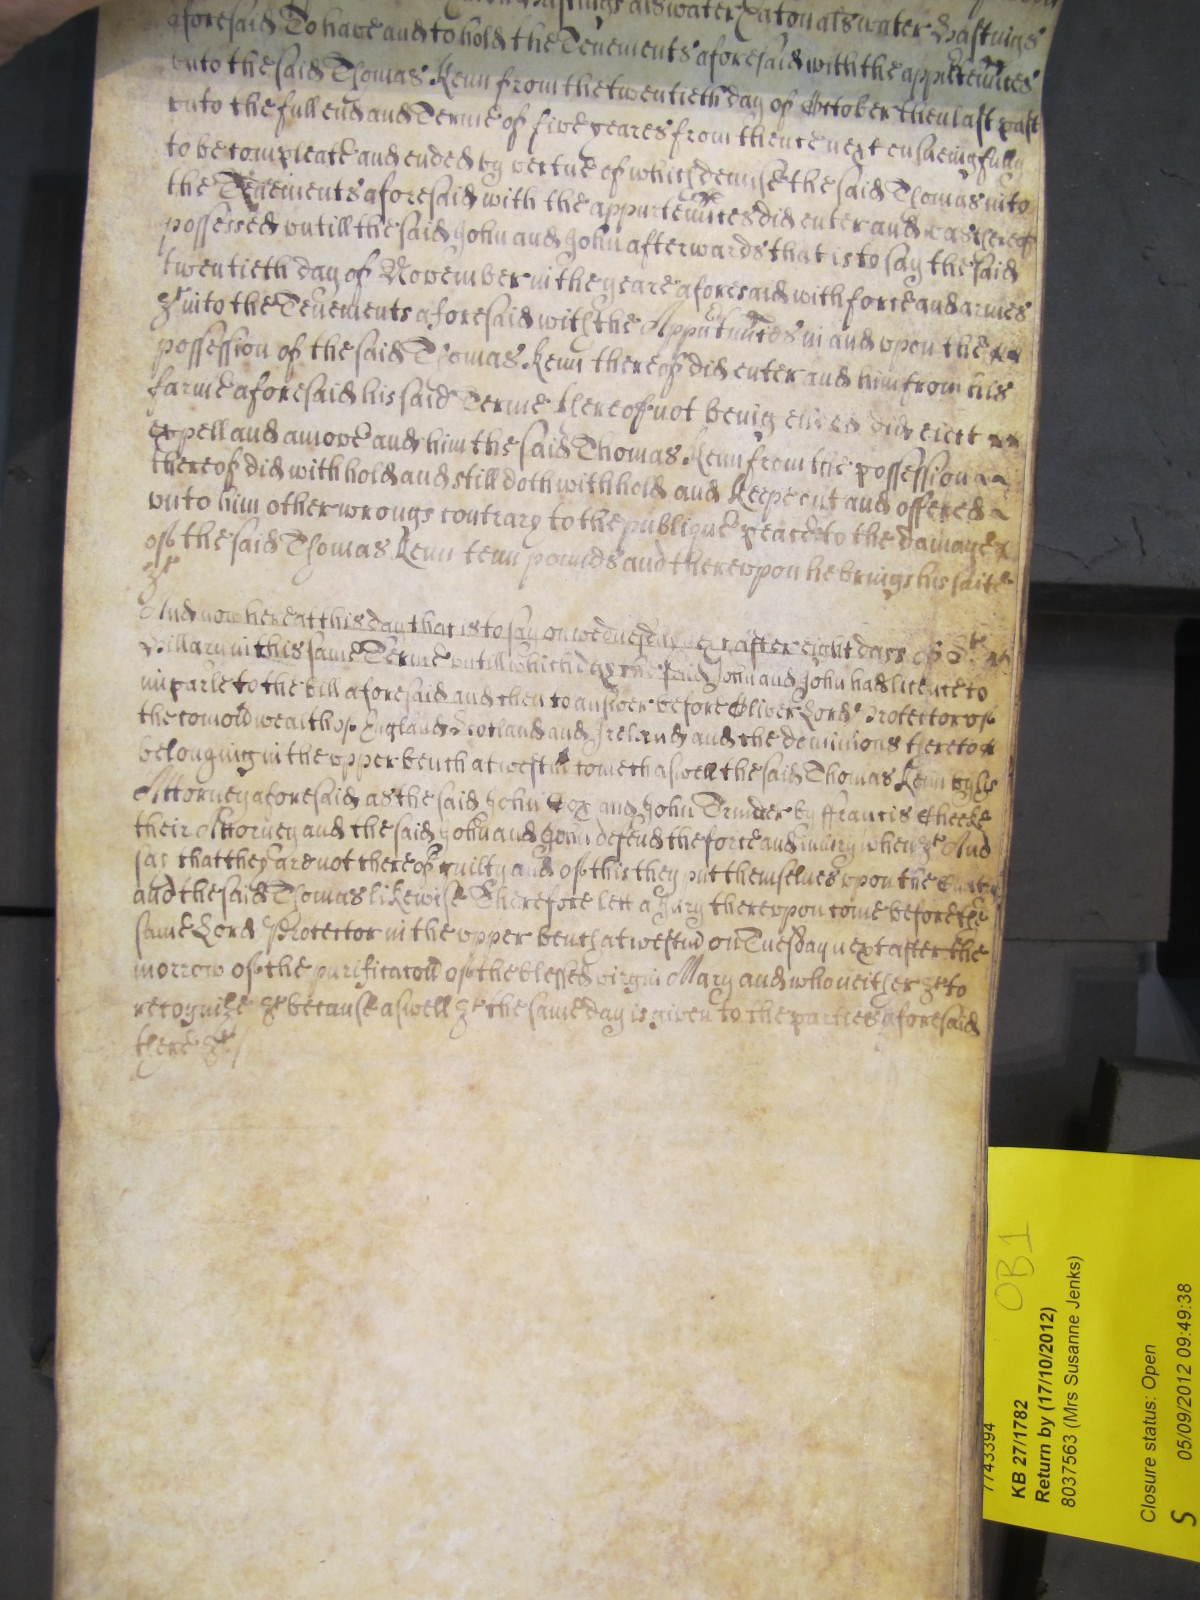 Hastings als water Eaton als water Hastings
aforesaid To have and to hold the Tenements aforesaid with the appurtennces
unto the said Thomas Kenn from the twentieth day of October then last past
unto the full end and Terme of five yeares from thence next ensueing fully
to be compleate and ended by vertue of which demise the said Thomas into
the Tenements aforesaid with the appurtennces did enter and was thereof
possessed untill the said John and John afterwards that is to say the said
twentieth day of November in the yeare aforesaid with force and armes
&c into the Tenements aforesaid with the Appurtennces in and upon the
possession of the said Thomas Kenn thereof did enter and him from his
farme aforesaid his said Terme thereof not being ended did eiect
expell and amove and him the said Thomas Kenn from the possession
thereof did withhold and still doth withhold and keepe out and offered
unto him other wrongs contrary to the publique peace to the damage
of the said Thomas Kenn tenn pounds and thereupon he brings his suite
&c
And now here att this day that is to say on wednesday next after eight dayes of St
Hillary in this same Terme untill which day the said John and John had licence to
imparle to the bill aforesaid and then to answer before Oliver Lord Protector of
the comonwealth of England Scotland and Ireland and the dominions thereto
belonging in the upper bench at westm cometh aswell the said Thomas Kenn by his
Attorney aforesaid as the said John Cox and John Trinder by ffrancis Cheeke
their Attorney and the said John and John defend the force and iniury when &c And
say that they are not thereof guilty and of this they put themselves upon the Cuntry
and the said Thomas likewise Therefore lett a Jury thereupon come before the
same Lord Protector in the upper bench at westm on Tuesday next after the
morrow of the purificacon of the blessed virgin Mary and who neither &c to
recognize &c because aswell &c the same day is given to the parties aforesaid
there &c/
OB1
7743394
KB 27/1782
Return by (17/10/2012)
8037563 (Mrs Susanne Jenks)
Closure status: Open
05/09/2012 09:49:38
S